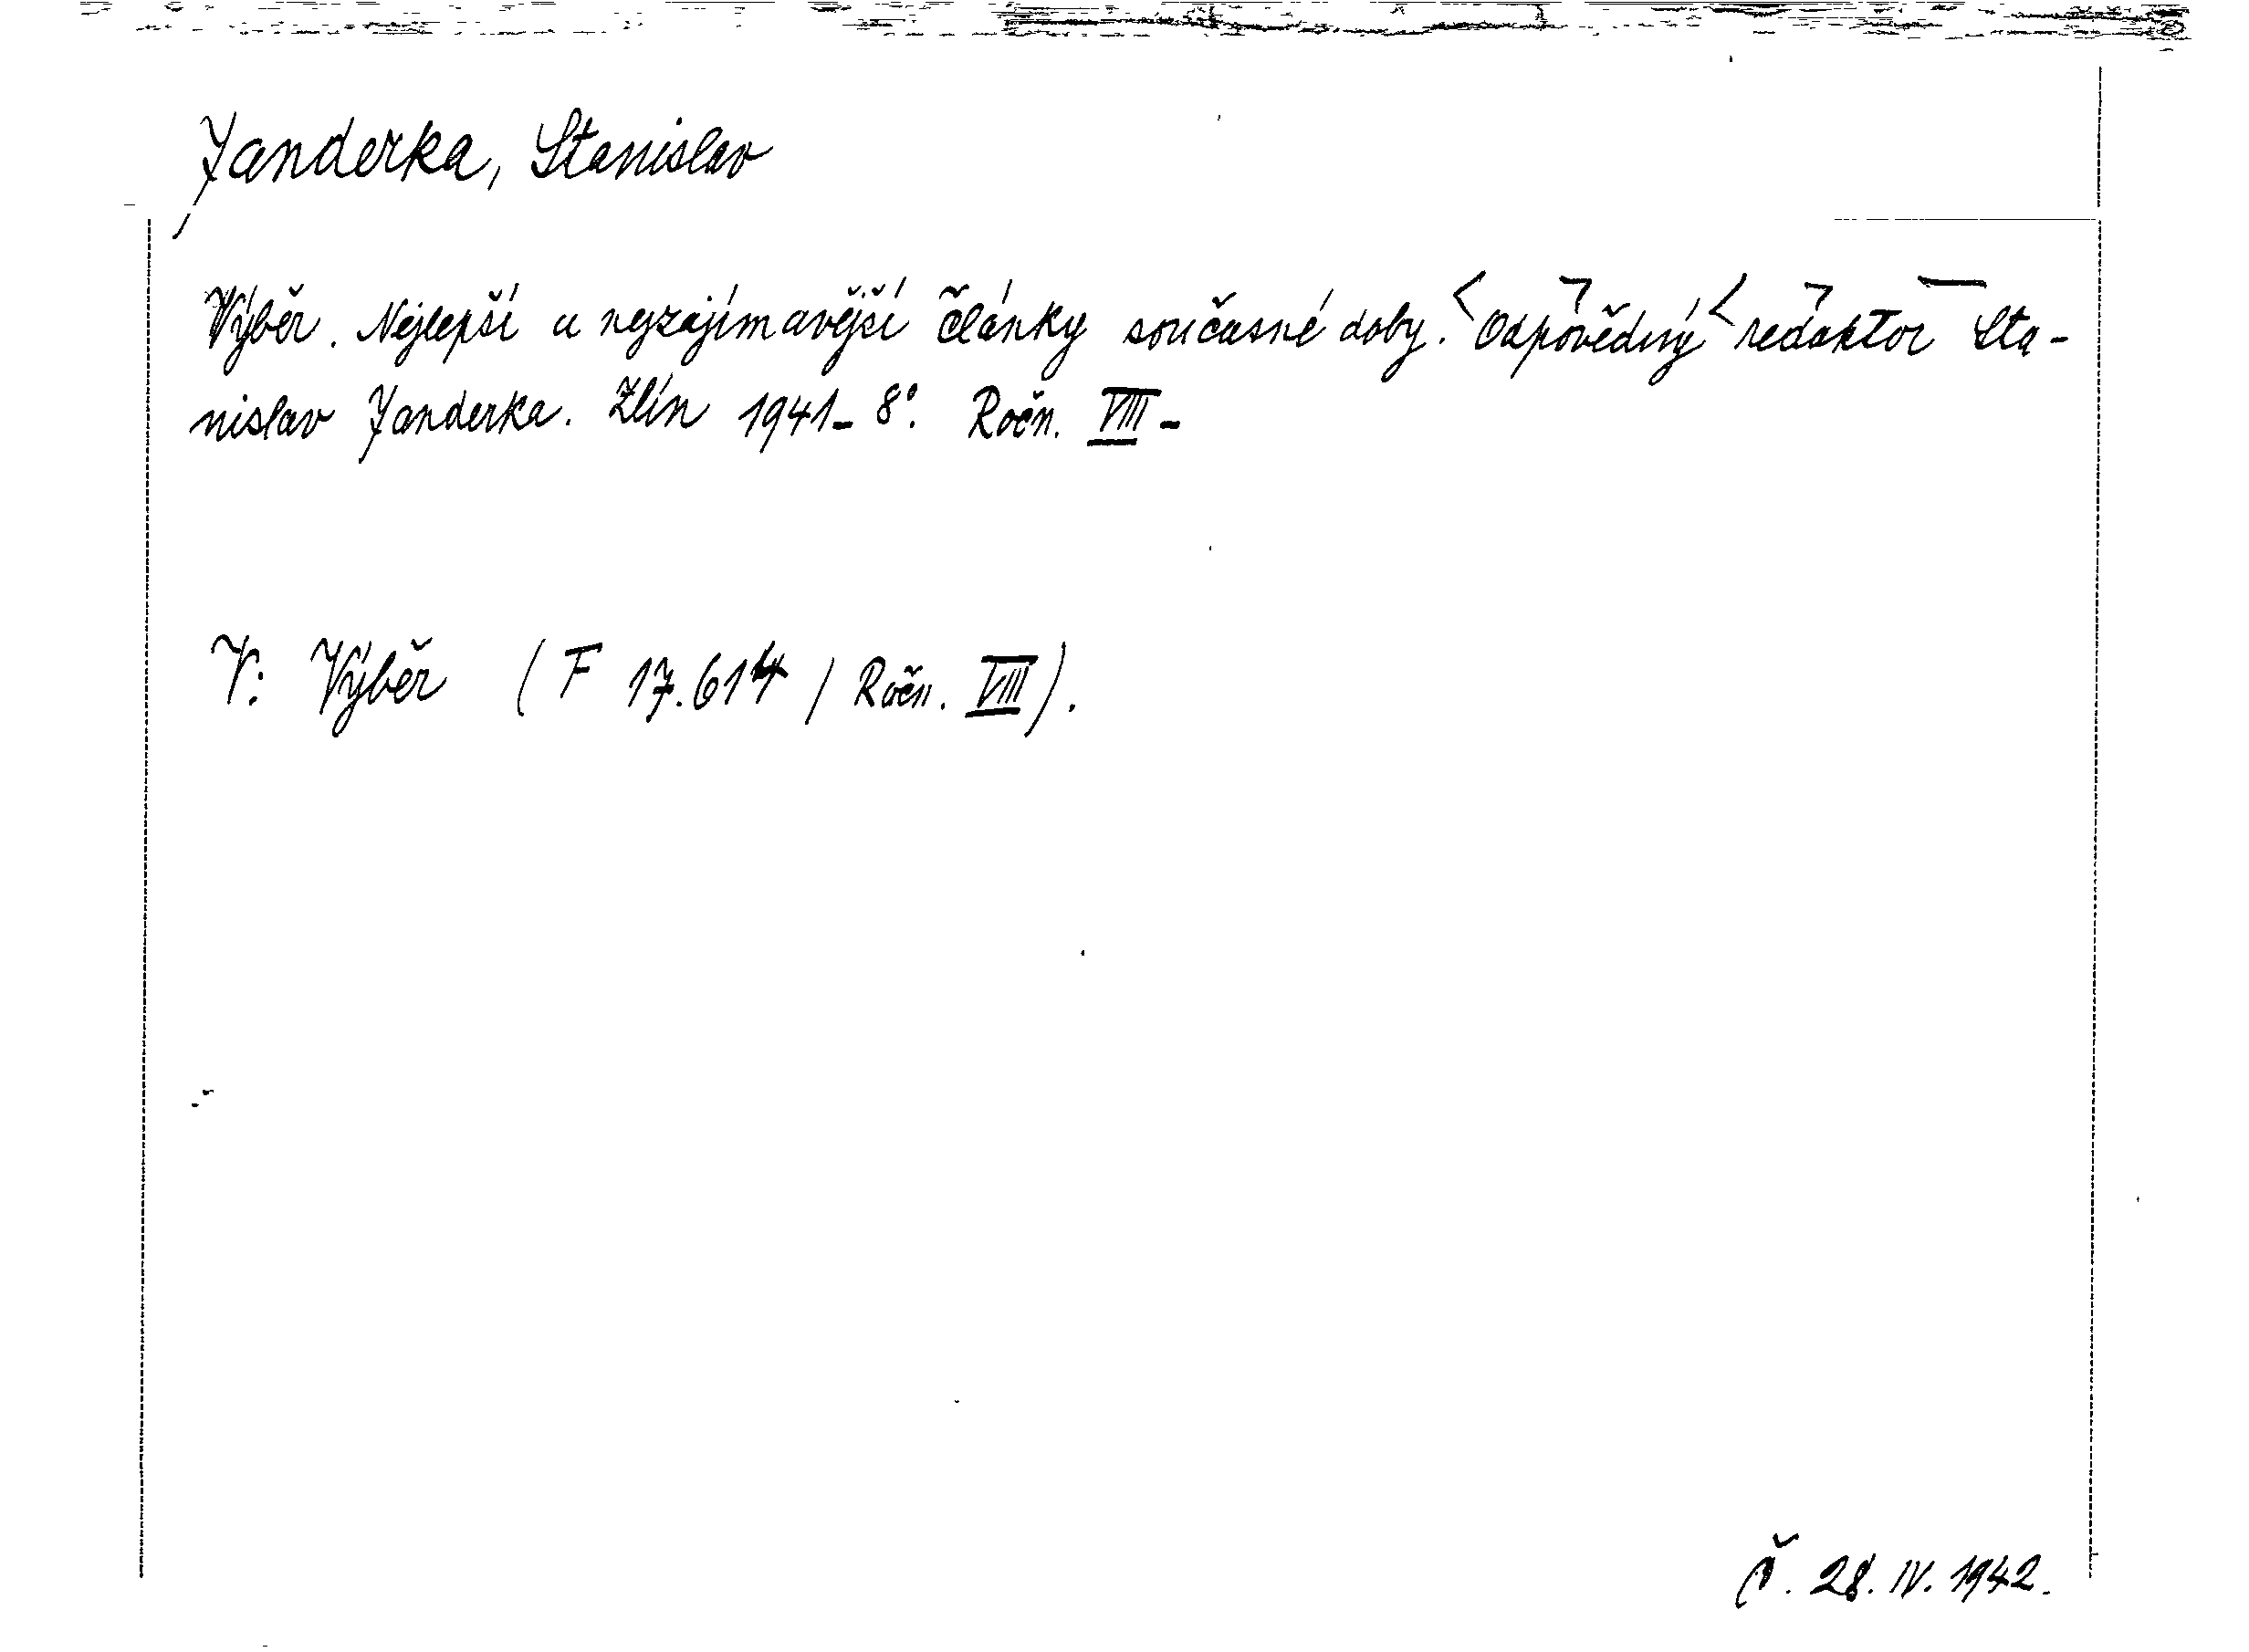 Janderka, Stanislav
Výběr. Nejlepší a nejzajímavější články současné doby. <Odpovědný> <redaktor> Sta-
nislav Janderka. Zlín 1941- 8°. Ročn. VIII-
V: Výběr (F 17.614 / Ročn. VIII).
Č. 28. IV. 1942.